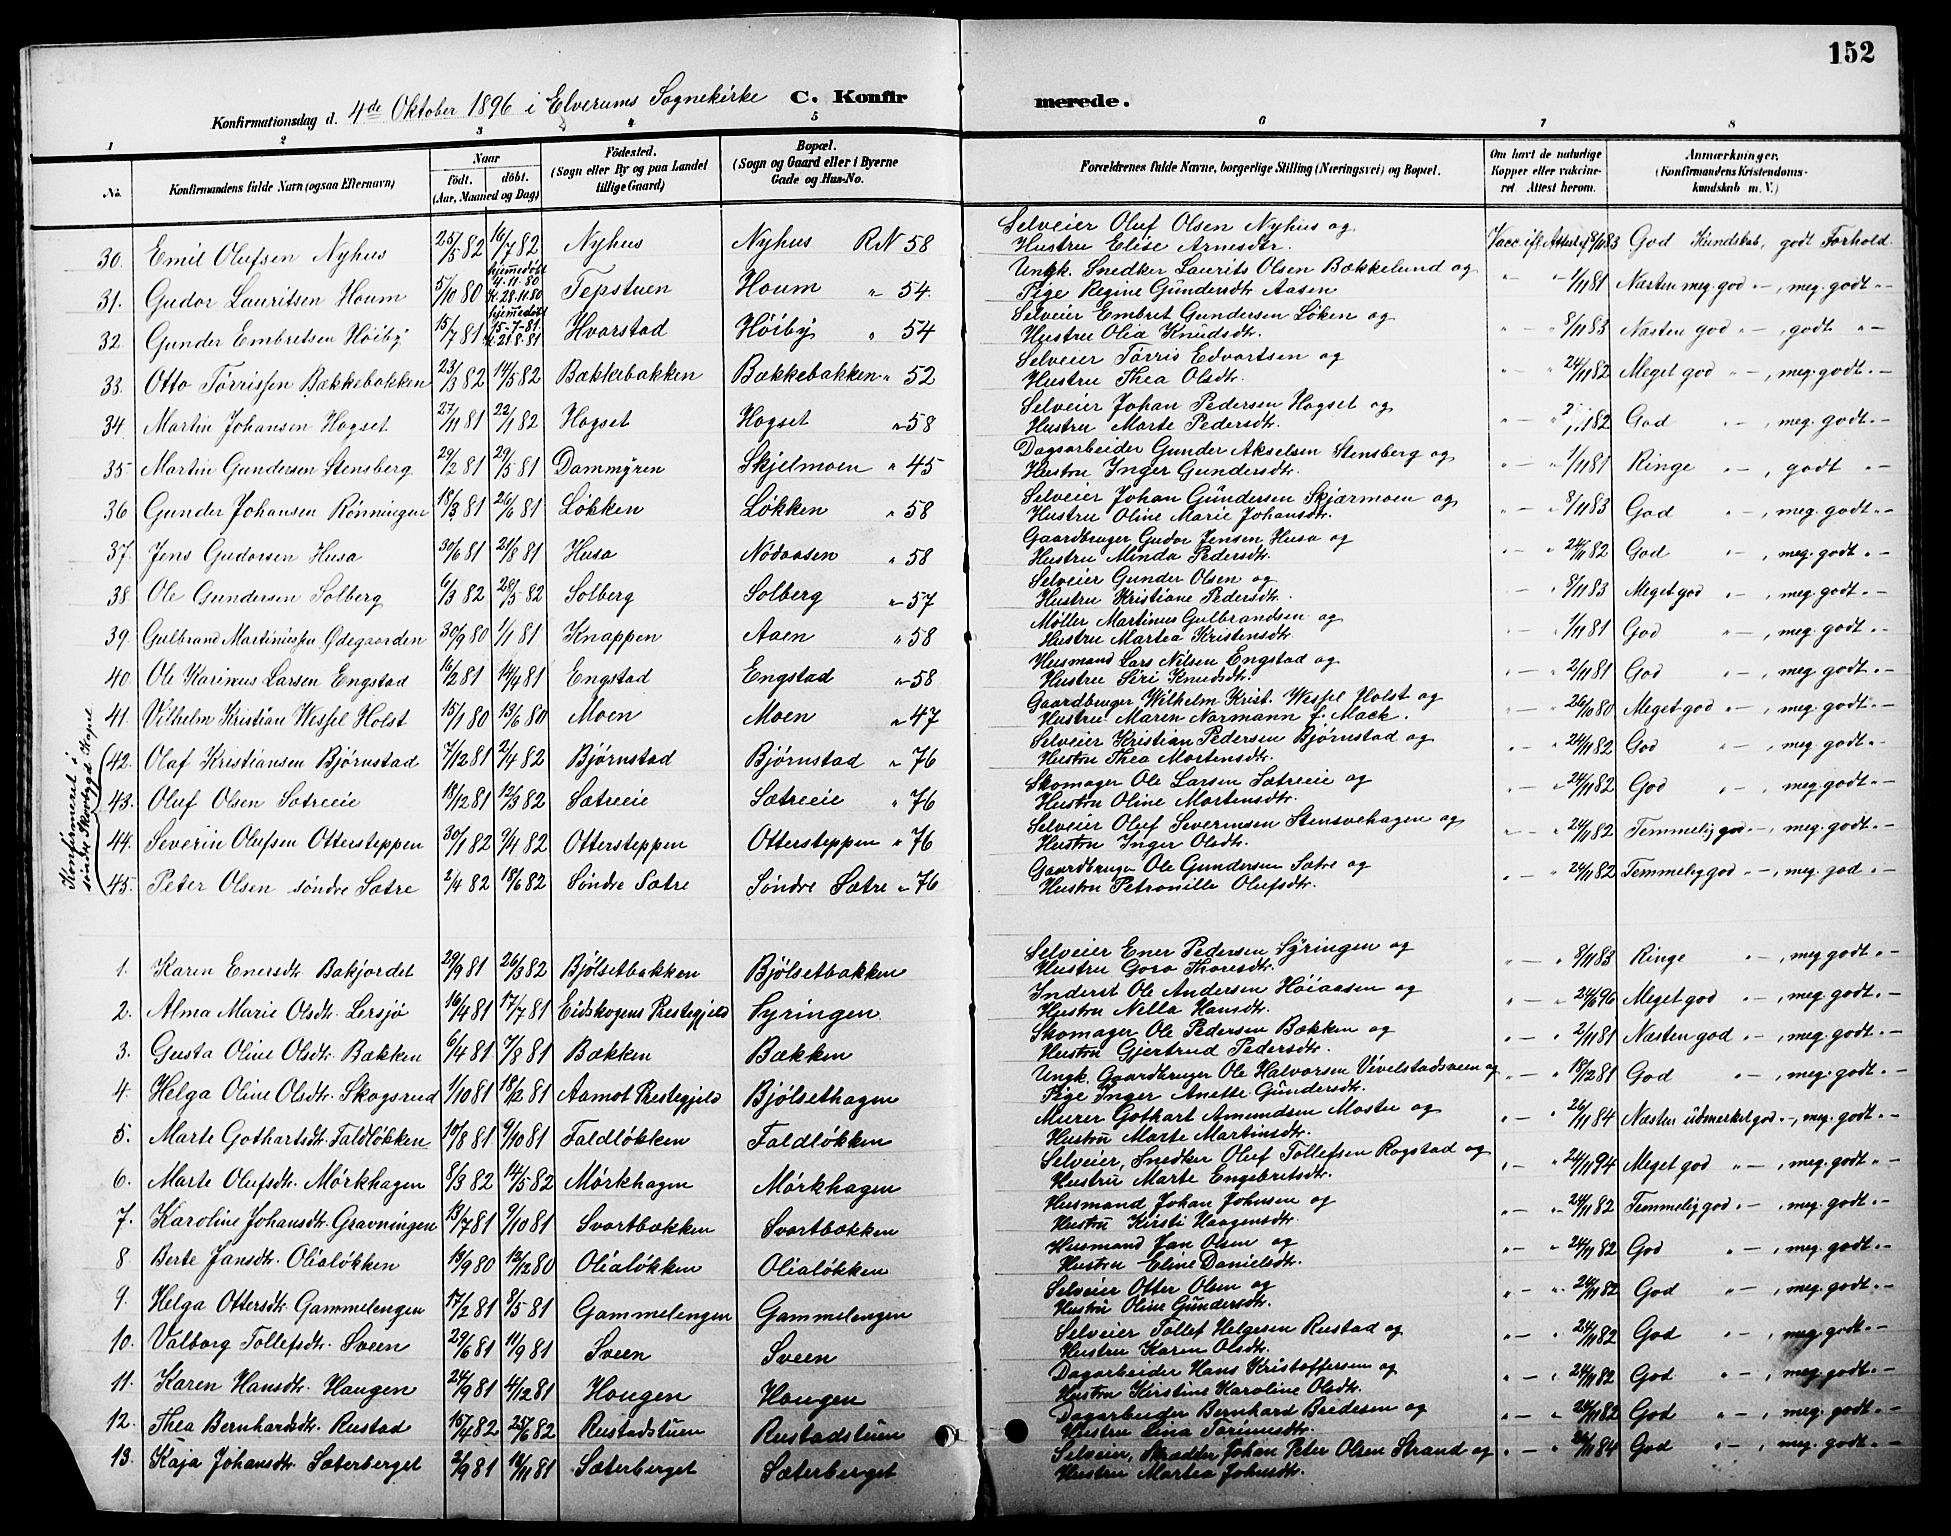 152
Konfirmationsdag d. 4de Oktober 1896 i Elverums Sognekirke C. Konfirmerede.
1 2 3 4 5 6 7 8
No. Konfirmandens fulde Navn (ogsaa Efternavn) Naar født. døbt. (Aar, Maaned og Dag) Fødested. (Sogn eller By og paa Landet tillige Gaard) Bopæl. (Sogn og Gaard eller i Byerne Gade og Hus-No. Forældrenes fulde Navne, borgerlige Stilling (Næringsvei) og Bopæl. Om havt de naturlige Kopper eller vakcineret. Attest herom. Anmærkninger. (Konfirmandens Kristendomskundskab m. V.)
30. Emil Olufsen Nyhus 25/5 82 16/7 82 Nyhus Nyhus RN 58 Selveier Oluf Olsen Nyhus og Hustru Elise Arnesdtr. Vacc. ifl. Attest af 8/11 83 God Kundskab, godt Forhold.
31. Gudor Lauritsen Houm 5/10 80 hjemmedøbt 4-11-80 K. 28.11.80 Tepstuen Houm " 54. Ungk. Snedker Laurits Olsen Bækkelund og Pige Regine Gundersdtr. Aasen " — " 1/11 81 Næsten meg. god " —, meg. godt " —
32 Gunder Embretsen Høiby 15/7 81 hjemmedøbt 15-7-81 K. 21-8-81 Hvarstad Høiby " 54 Selveier Embret Gundersen Løken og Hustru Olia Knudsdtr. " — " 8/11 83 Næsten god " —, godt " —
33. Otto Tørrissen Bækkebakken 23/3 82 14/5 82 Bækkebakken Bækkebakken " 52 Selveier Tørris Edvartsen og Hustru Thea Olsdtr. " — " 24/11 82 Meget god " —, meg. godt " —
34. Martin Johansen Hagset 27/11 81 22/1 82 Hagset Hagset " 58 Selveier Johan Pedersen Hagset og Hustru Marte Pedersdtr. " — " 82 God " —, meg. godt " —
35 Martin Gundersen Stensberg 29/2 81 29/5 81 Dammyren Skjelmoen " 45 Dagsarbeider Gunder Akselsen Stensberg og Hustru Inger Gundersdtr. " — " 1/11 81 Ringe " —, godt " —
36 Gunder Johansen Rønningen 18/3 81 26/6 81 Løkken Løkken " 58 Selveier Johan Gundersen Skjærmoen og Hustru Oline Marie Johansdtr. " — " 8/11 83 God " —, meg. godt " —
37. Jens Gudorsen Husa 30/6 81 21/8 81 Husa Nødaasen " 58 Gaardbruger Gudor Jensen Husa og Hustru Minda Pedersdtr. " — " 24/11 82 God " —, meg. godt " —
38 Ole Gundersen Solberg 6/3 82 28/5 82 Solberg Solberg " 57 Selveier Gunder Olsen og Hustru Kristiane Pedersdtr. " — " 8/11 83 Meget god " —, meg. godt " —
39 Gulbrand Martinussen Ødegaarden 30/9 80 1/1 81 Knappen Aaen " 58 Møller Martinus Gulbrandsen og Hustru Martea Kristensdtr. " — " 1/11 81 God " —, meg. godt " —
40. Ole Karinus Larsen Engstad 16/2 81 14/4 81 Engstad Engstad " 58 Husmand Lars Nilsen Engstad og Hustru Siri Knudsdtr. " — " 2/11 81 God " —, meg godt " —
41. Vilhelm Kristian Wessel Holst 15/1 80 13/6 80 Moen Moen " 47 Gaardbruger Wilhelm Krist. Wessel Holst og Hustru Maren Normann f. Mack. " — " 26/10 80 Meget god " —, meg. godt " —
Konfirmeret i søndre Skovbygd Kapel
42. Olaf Kristiansen Bjørnstad 7/12 81 2/4 82 Bjørnstad Bjørnstad " 76 Selveier Kristian Pedersen Bjørnstad og Hustru Thea Mortensdtr. " — " 24/11 82 God " —, meg. godt " —
43. Oluf Olsen Sætreeie 18/12 81 12/3 82 Sætreeie Sætreeie " 76 Skomager Ole Larsen Sætreeie og Hustru Oline Mortensdtr. " — " 24/11 82 God " —, meg. godt " —
44. Severin Olufsen Ottersteppen 30/1 82 9/4 82 Ottersteppen Ottersteppen " 76 Selveier Oluf Severinsen Stensvehagen og Hustru Inger Olsdtr. " — " 24/11 82 Temmelig god " —, meg. godt " —
45. Peter Olsen søndre Sætre 2/4 82 18/6 82 Søndre Sætre Søndre Sætre " 76 Gaardbruger Ole Gundersen Sætre og Hustru Petronille Olufsdtr. " — " 24/11 82 Temmelig god " —, meg. god " —
1. Karen Enersdtr. Bakjordet 29/9 81 26/3 82 Bjølsetbakken Bjølsetbakken Selveier Ener Pedersen Syringen og Hustru Goro Thoresdtr. " — " 8/11 83 Ringe " —, meg godt " —
2. Alma Marie Olsdtr. Lersjø 16/4 81 17/7 81 Eidskogens Prestegjeld Syringen. Inderst Ole Andersen Høiaasen og Hustru Nella Hansdtr. " — " 24/6 96 Meget god " —, meg. godt " —
3. Gusta Oline Olsdtr. Bækken 6/4 81 7/8 81 Bækken Bækken Skomager Ole Pedersen Bækken og Hustru Gjertrud Pedersdtr. " — " 2/11 81 Næsten god " —, meg. godt " —
4. Helga Oline Olsdtr. Skogsrud 1/10 81 18/2 81 Aamot Prestegjeld Bjølsethagen Ungk. Gaardbruger Ole Halvorsen Vivelstadsveen og Pige Inger Anette Gundersdtr. " — " 18/12 81 God " —, meg. godt " —
5. Marte Gothartsdtr. Faldløkken 10/8 81 9/10 81 Faldløkken Faldløkken Murer Gothart Amundsen Mostu og Hustru Marte Martinsdtr. " — " 26/11 84 Næsten udmerket god " —, meg. godt " —
6. Marte Olufsdtr. Mørkhagen 8/3 82 14/5 82 Mørkhagen Mørkhagen Selveier, Snedker Oluf Tollefsen Rogstad og Hustru Marte Engebretsdtr. " — " 24/11 94 Meget god " —, meg. godt " —
7. Karoline Johansdtr. Gravningen 13/7 81 9/10 81 Svartbækken Svartbækken Husmand Johan Johnsen og Hustru Kirsti Haagensdtr. " — " 24/11 82 Temmelig god " —, meg. godt " —
8 Berte Jansdtr. Olialøkken 19/9 80 12/12 80 Olialøkken Olialøkken Husmand Jan Olsen og Hustru Eline Danielsdtr. " — " 24/11 82 God " —, meg. godt " —
9. Helga Ottersdtr. Gammelengen 17/2 81 8/5 81 Gammelengen Gammelengen Selveier Otter Olsen og Hustru Oline Gundersdtr. " — " 24/11 82 God " —, meg. godt " —
10. Valborg Tollefsdtr. Sveen 29/6 81 11/9 81 Sveen Sveen Selveier Tollef Helgesen Rustad og Hustru Karen Olsdtr. " — " 24/11 82 God " —, meg. godt " —
11. Karen Hansdtr. Haugen 24/9 81 4/12 81 Haugen Haugen Dagarbeider Hans Kristoffersen og Hustru Kirstine Karoline Olsdtr. " — " 24/11 82 God " —, meg. godt " —
12. Thea Bernhardsdtr. Rustad 15/4 82 25/6 82 Rustadstuen Rustadstuen Dagarbeider Bernhard Bredesen og Hustru Lina Torinusdtr. " — " 24/11 82 God " —, meg. godt " —
13. Kaja Johansdtr. Sæterberget 2/9 81 12/11 81 Sæterberget Sæterberget Selveier, Skrædder Johan Peter Olsen Strand og Hustru Martea Johnsdtr. " — " 26/11 84 God " —, meg. godt " —